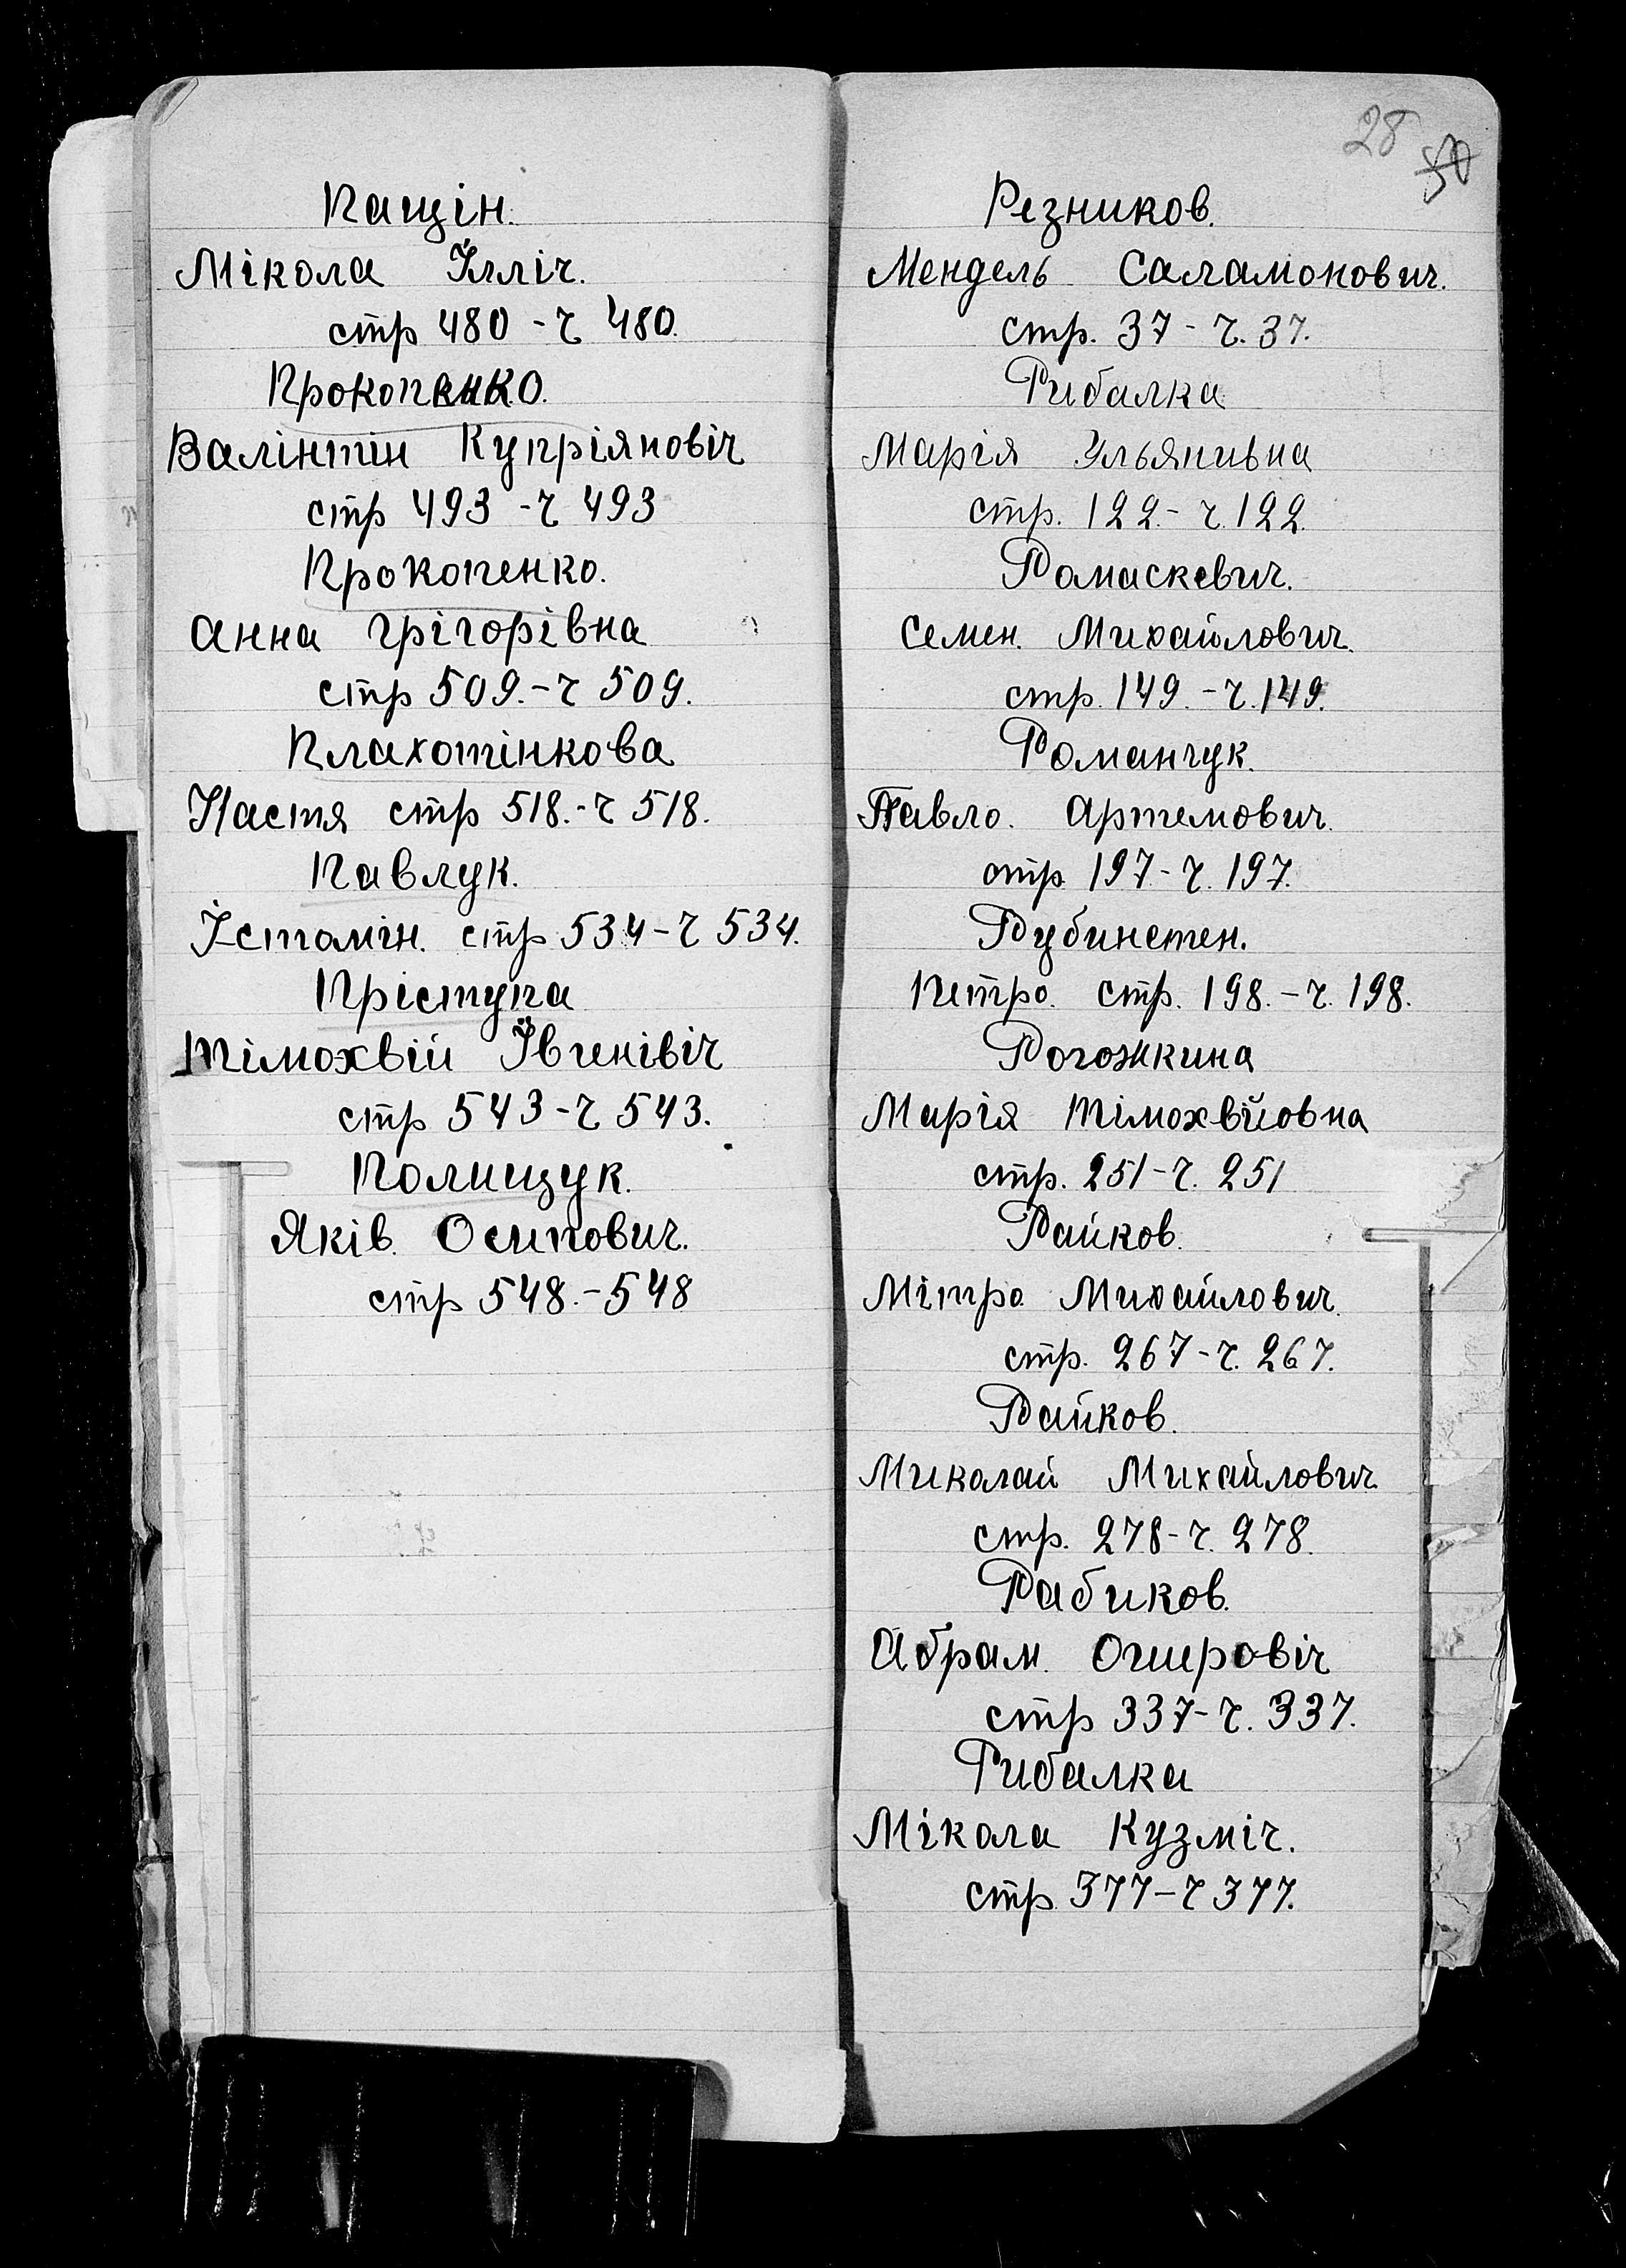 Пащін.
Мікола Ілліч.
стр 480 - ч 480.
Прокопенко.
Валінтін Купріянновіч
стр 493 - ч 493
Прокопенко.
Анна Грігорівна
стр 509. - ч 509.
Плахотінкова
Настя стр 518. - ч 518.
Павлук.
стр 534 - ч 534.
Пріступа
Тімохвій Івгенівіч
стр 543 - ч 543.
Полищук.
Яків. Осипович.
стр 548. - 548
28 50
Резников.
Мендель Саламонович.
стр. 37 - ч. 37.
Рибалка
Марія Ульянивна
стр. 122. - ч. 122.
Ромаскевич.
Семен. Михайлович.
стр. 149. - ч. 149.
Романчук.
Павло. Артемович.
стр. 197 - ч. 197.
Рубинстен.
Петро. стр. 198. - ч. 198.
Рогожкина
Марія Тімохвійовна
стр. 251 - ч. 251
Райков.
Мітро. Михайлович.
стр. 267 - ч. 267.
Райков.
Миколай Михайлович
стр. 278 - ч. 278.
Рабиков.
Абрам. Ошеровіч
стр 337 - ч. 337.
Рибалка
Мікола Кузміч.
стр. 377 - ч 377.